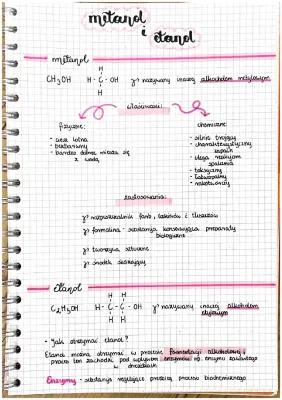 metanol
i
etanol
metanol
CH₃OH
H
H - C - OH
H
nazywany inaczej alkoholem metylowym
właściwości:
fizyczne:
- ciecz lotna
- bezbarwny
- bardzo dobrze miesza się
z wodą
chemiczne:
- silnie trujący
- charakterystyczny
zapach
- ulega reakcjom
spalania
- toksyczny
- łatwopalny
- narkotyczny
zastosowania:
rozpuszczalnik farb, lakierów i tłuszczów
formalina - substancja konserwująca preparaty
biologiczne
tworzywa sztuczne
środek skażający
etanol
C₂H₅OH
H H
H - C - C - OH
H H
nazywany inaczej alkoholem
etylowym
• Jak otrzymać etanol?
Etanol można otrzymać w procesie fermentacji alkoholowej,
proces ten zachodzi pod wpływem enzymów np. enzymu zawartego
w drożdżach
Enzymy - substancje regulujące przebieg procesu biochemicznego